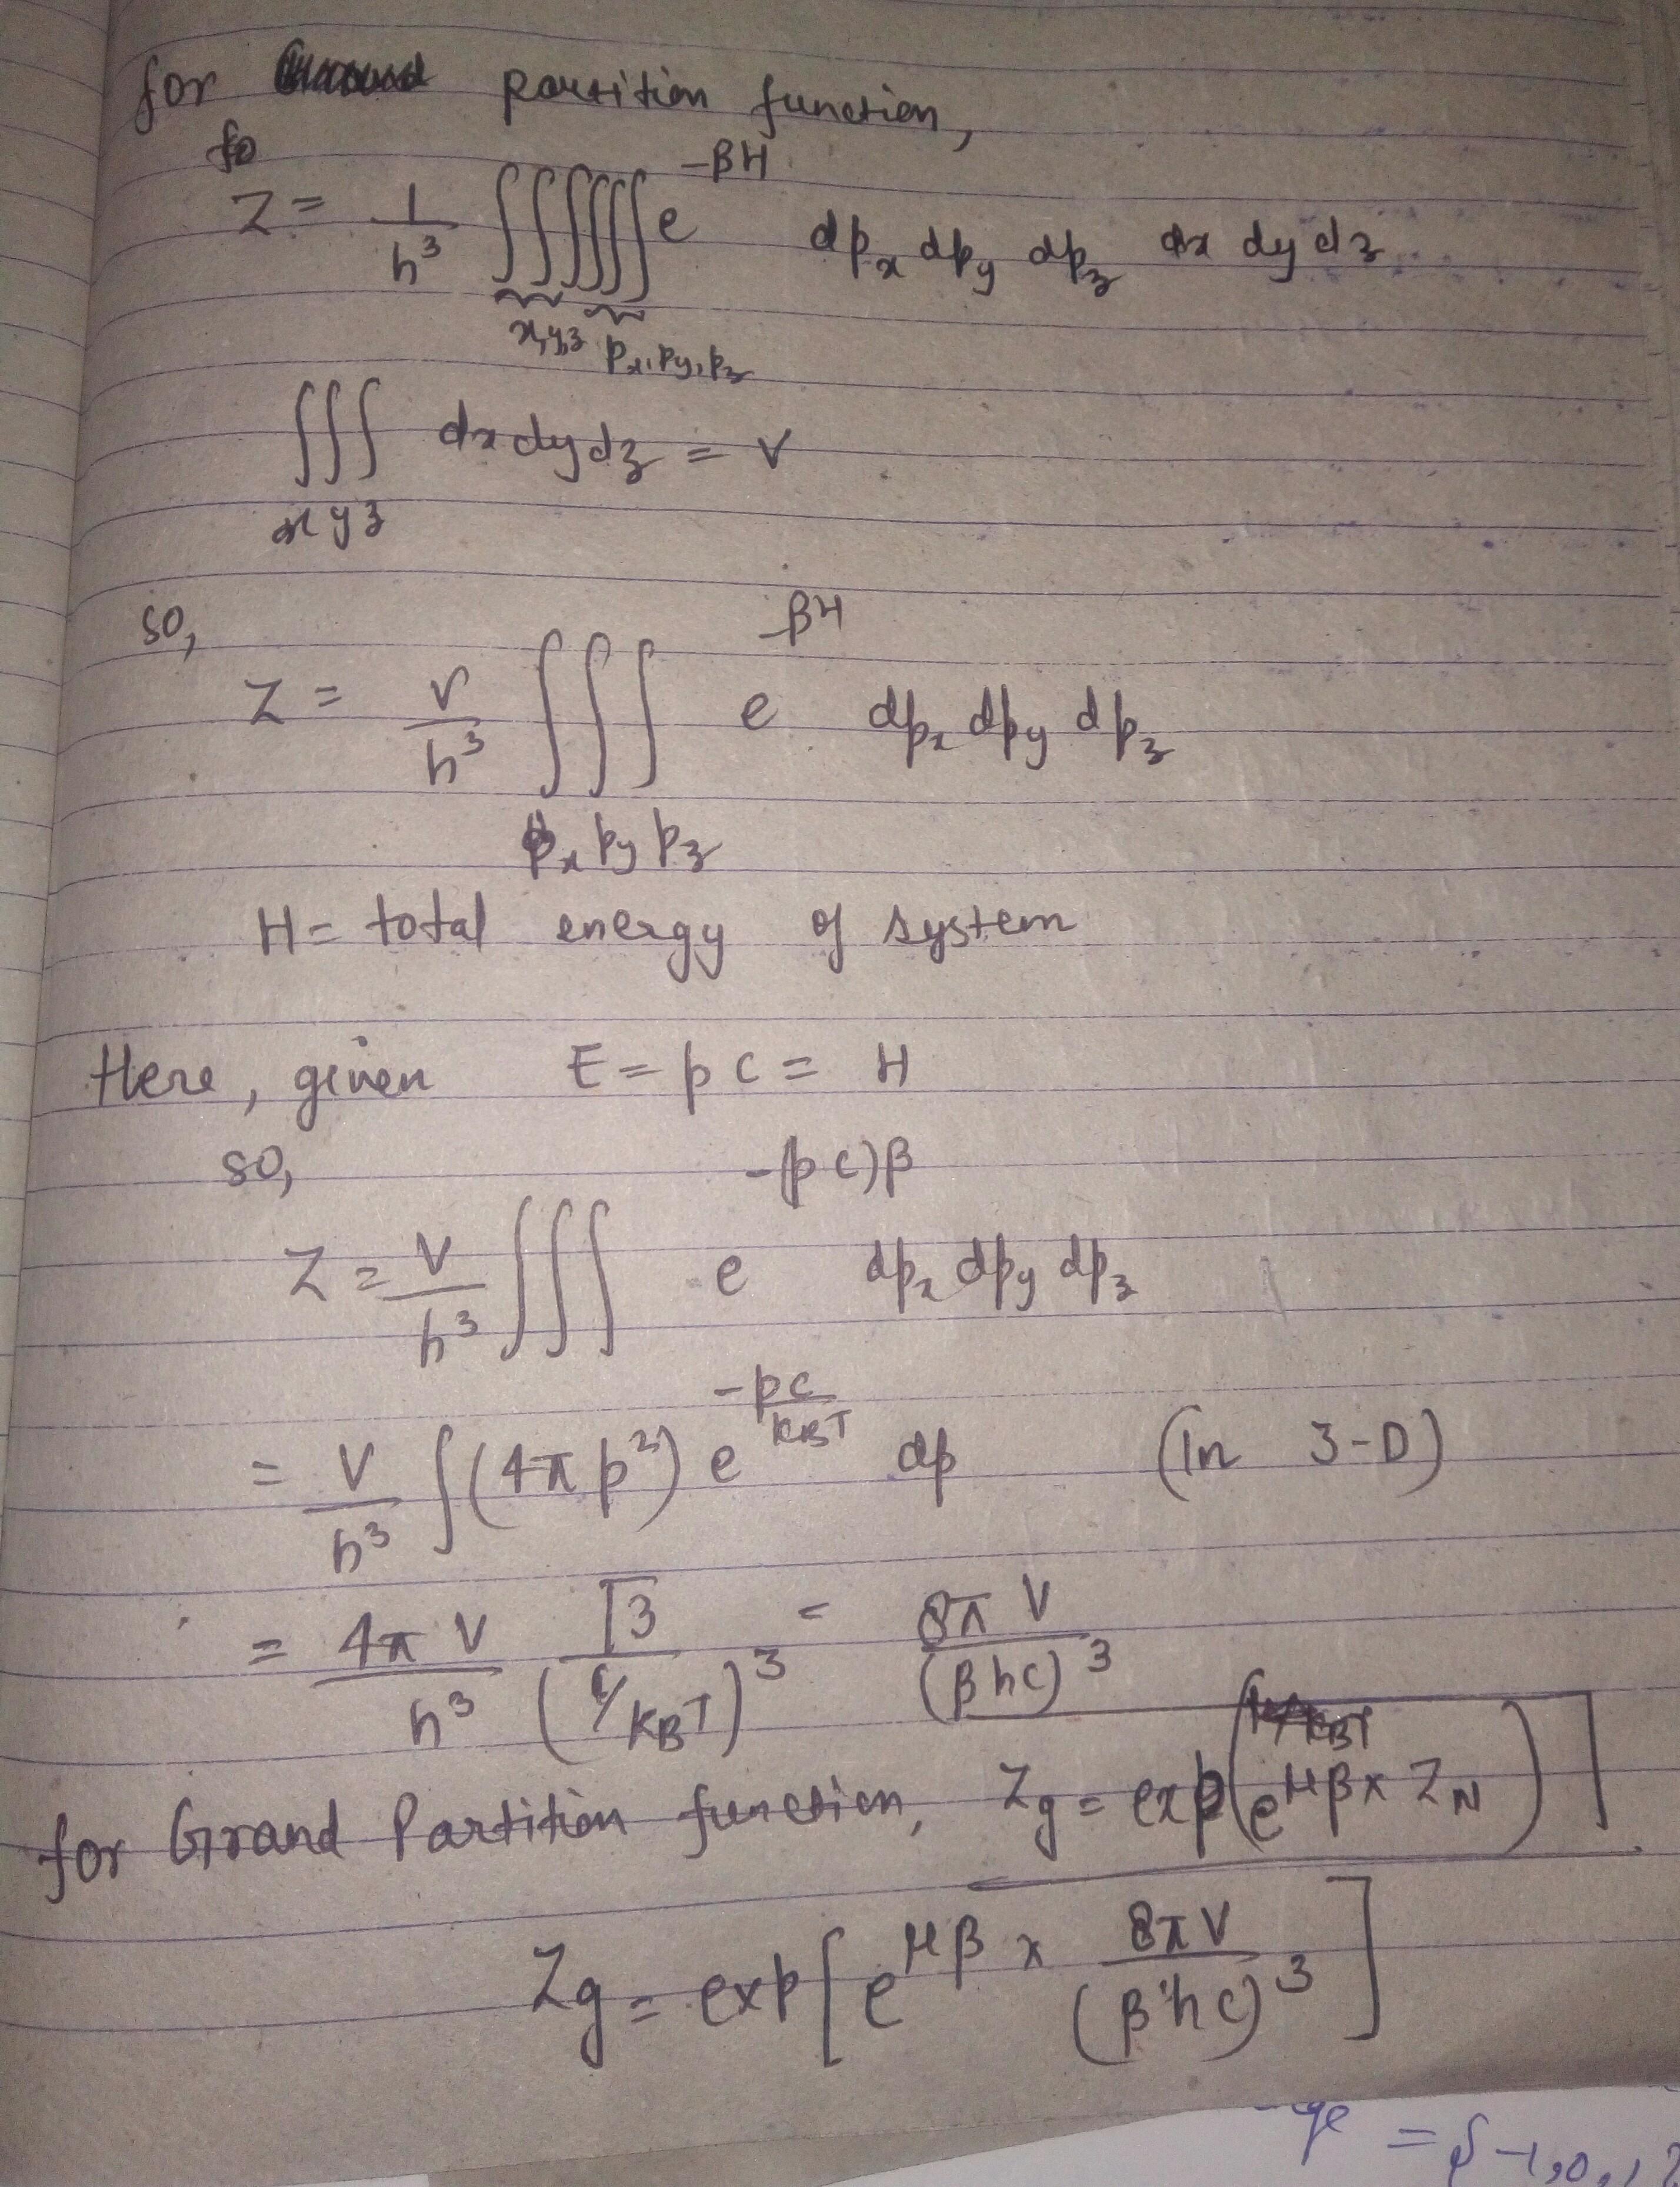 for partition function,
so
Z = 1/h³ ∫∫∫∫∫∫ e^(-βH) dpx dpy dpz dx dy dz
x,y,z px,py,pz
∫∫∫ dx dy dz = V
x y z
so,
Z = V/h³ ∫∫∫ e^(-βH) dpx dpy dpz
px py pz
H = total energy of system
Here, given E = pc = H
so,
Z = V/h³ ∫∫∫ e^(-(pc)β) dpx dpy dpz
= V/h³ ∫(4πp²) e^(-pc/KBT) dp (In 3-D)
= 4πV/h³ Γ3/(c/KBT)³ = 8πV/(βhc)³
for Grand Partition function, Zg = exp(e^(μβ) x ZN)
Zg = exp[e^(μβ) x 8πV/(βhc)³]
= {-1,0,1